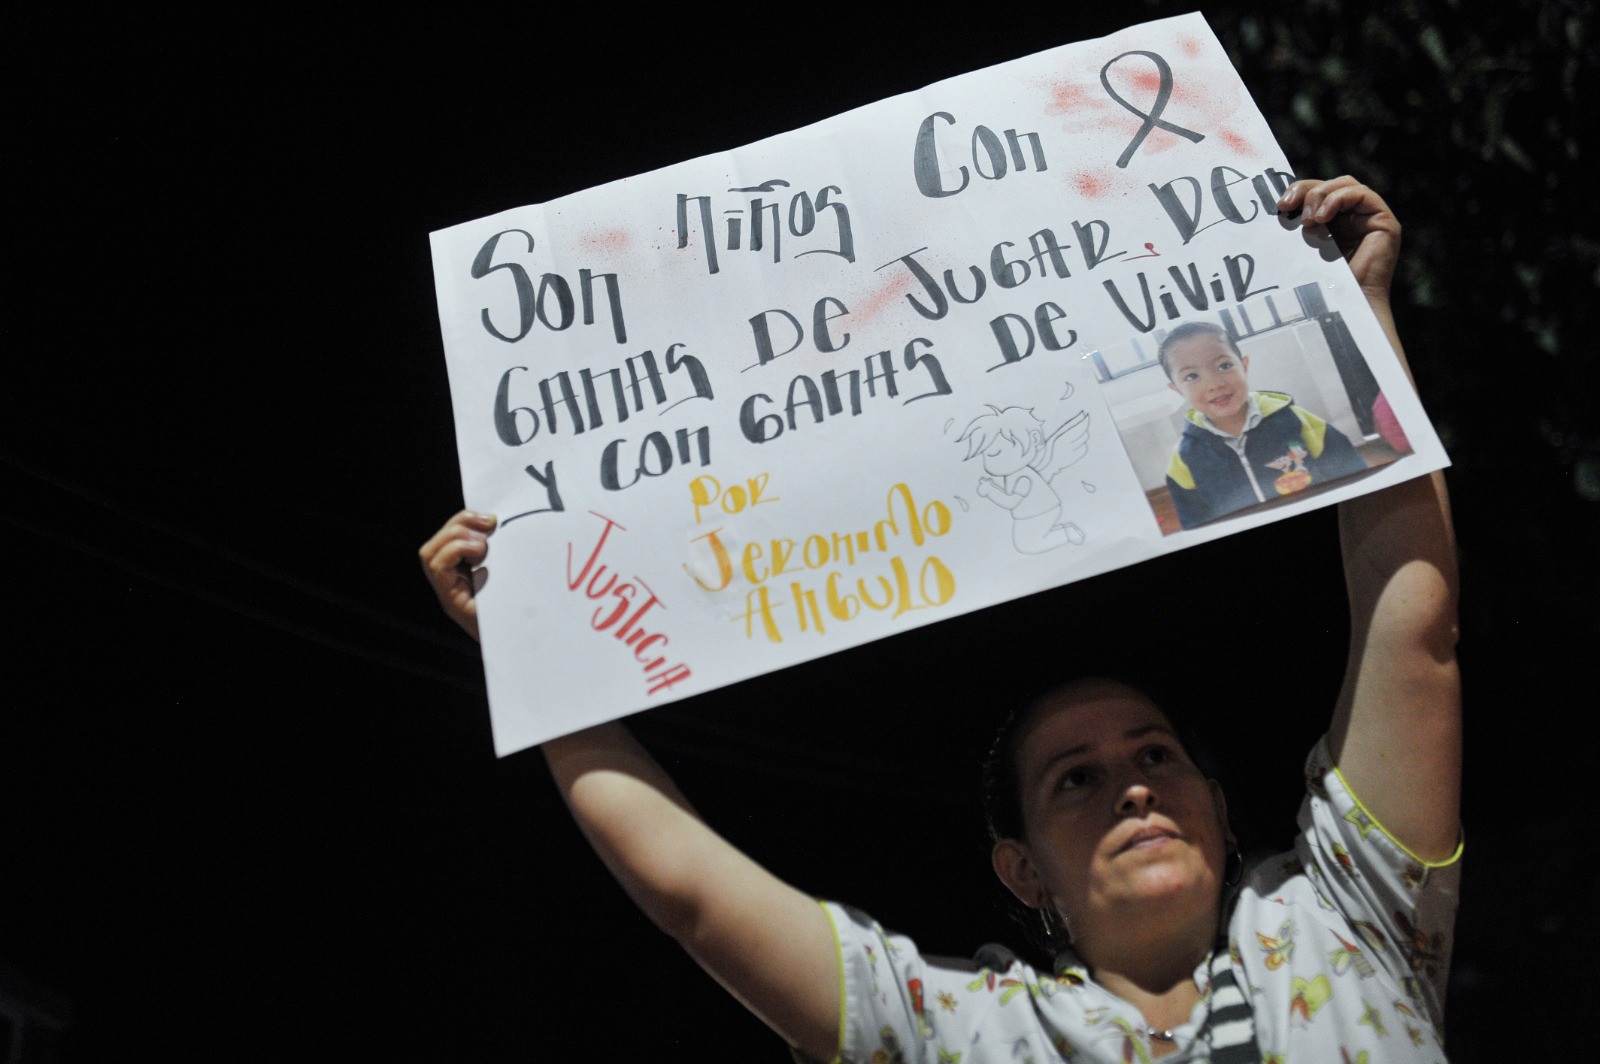 Son niños Con
GANAS DE JUGAR.
y con GANAS DE ViViR
POR
JERONIMO
ANGULO
JUSTICIA